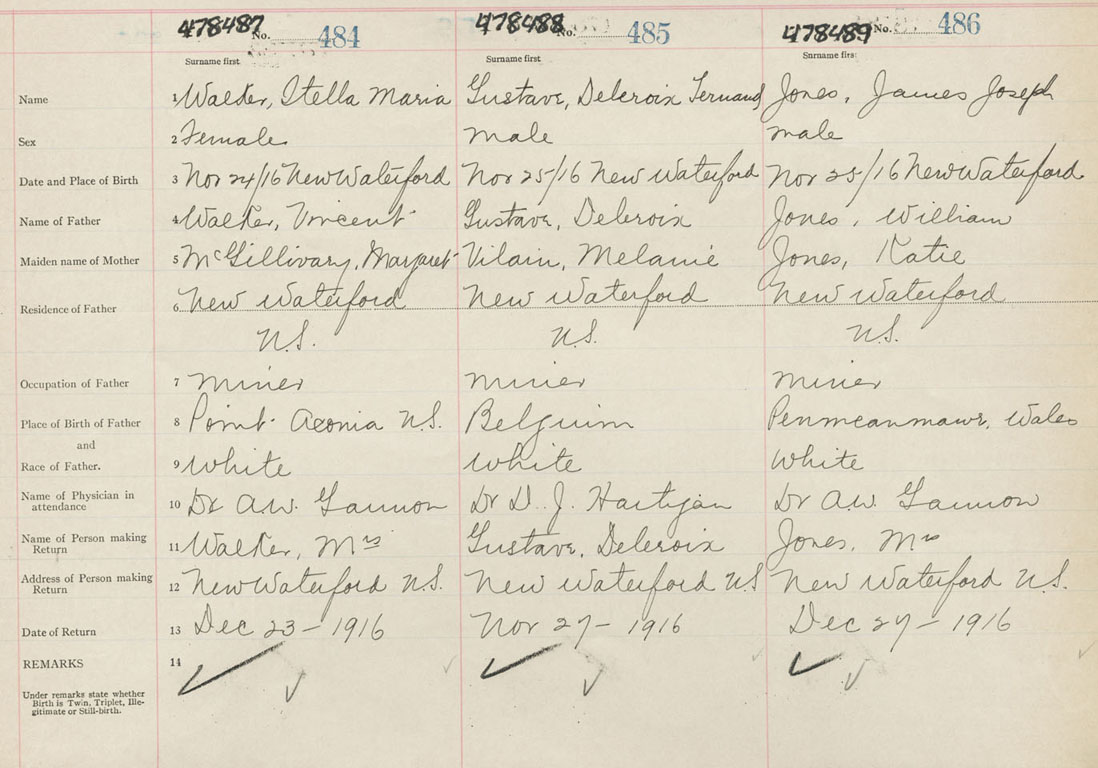 478487 No. 484 478488 No. 485 478489 No. 486
Surname first Surname first Surname first
Name 1 Walker, Stella Maria Gustave, Delcroix Fernand Jones, James Joseph
Sex 2 Female Male Male
Date and Place of Birth 3 Nov 24/16 New Waterford Nov 25/16 New Waterford Nov 25/16 New Waterford
Name of Father 4 Walker, Vincent Gustave, Delcroix Jones, William
Maiden name of Mother 5 McGillivary, Margaret Vilain, Melanie Jones, Katie
Residence of Father 6 New Waterford New Waterford New Waterford
N.S. N.S. N.S.
Occupation of Father 7 Miner Miner Miner
Place of Birth of Father 8 Point Aconia N.S. Belguim Penmeanmawr, Wales
and
Race of Father. 9 White White White
Name of Physician in
attendance 10 Dr A.W. Gannon Dr D. J. Hartigan Dr A.W. Gannon
Name of Person making
Return 11 Walker, Mrs Gustave, Delcroix Jones, Mrs
Address of Person making
Return 12 New Waterford N.S. New Waterford N.S New Waterford N.S.
Date of Return 13 Dec 23 - 1916 Nov 27 - 1916 Dec 27 - 1916
REMARKS 14
Under remarks state whether
Birth is Twin, Triplet, Ille-
gitimate or Still-birth.